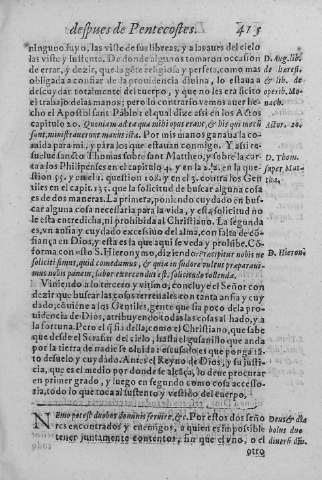 despues de Pentecostes. 415
ninguno suyo, las viste de sus libreas, y a las aues del cielo
las viste y sustenta. De donde algunos tomaron occasion
de errar, y dezir, que la gẽte religiosa y perfeta, como mas
obligada a confiar de la prouidencia diuina, lo estaua a
descuydar totalmente del cuerpo, y que no les era licito
el trabajo de las manos; pero lo contrario vemos auer he-
cho el Apostol sant Pablo: el qual dize assi en los Actos
capitulo 20. Quoniam ad ea quæ mihi opus erant, & his qui mecũ
sunt, ministrauerunt manus istæ. Por mis manos ganaua la co-
mida para mi, y para los que estauan conmigo. Y assi re-
suelue sancto Thomas sobre sant Mattheo, y sobre la car-
ta a los Philipenses en el capitulo 4. y en la 2. 2. en la que-
stion 55. y en el. question 108. y en el 3. contra los Gen-
tiles en el capit. 135. que la solicitud de buscar alguna cosa
es de dos maneras. La primera, poniendo cuydado en bus-
car alguna cosa necessaria para la vida, y esta solicitud no
le esta entredicha, ni prohibida al Christiano. La segunda
es, vn ansia y cuydado excessiuo del alma, con falta de cõ-
fiança en Dios, y esta es la que aqui se veda y prohibe. Cõ-
forma con esto S. Hieronymo, diziendo: Præcipitur nobis ne
soliciti simus, quid comedamus, & quia in sudore vultus præparaui-
mus nobis panem, labor exercendus est, solicitudo tollenda.
Viniendo a lo tercero y vltimo, concluye el Señor con
dezir que buscar las cosas terrenales con tanta ansia y cuy
dado, cõuiene a los Gentiles, gente que fia poco de la pro-
uidencia de Dios, atribuyendo todas las cosas al hado, y a
la fortuna. Pero el q̃ fia della, como el Christiano, que sabe
que desde el Serafin del cielo, hasta el gusanillo que anda
por la tierra de nadie se oluida: escusa los ojos que ponga tã-
to desuelo y cuydado. Antes el Reyno de Dios, y su justi-
cia, que es el medio por donde se alcãça, lo deue procurar
en primer grado, y luego en segundo como cosa accesso-
ria, todo lo que toca al sustento y vestido del cuerpo.
Nemo potest duobus dominis seruire, &c. Por estos dos seño
res encontrados y enemigos, a quien es impossible
tener juntamente contentos, sin que el vno, o el
otro
D. Aug. lib.
de hæresi.
& lib. de
operib. Mo-
nach.
Actor. 20.
D. Thom.
super Mat-
thæ.
D. Hieron.
Deus & dia
bolus duo
diuersi dñi.